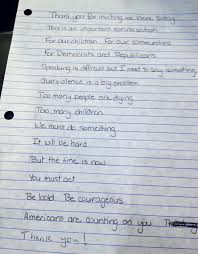 Thank you for inviting me here today
This is an important conversation
For our children. For our communities.
For Democrats and Republicans
Speaking is difficult but I need to say something
Gun violence is a big problem
Too many people are dying
Too many children
We must do something
It will be hard
But the time is now
You must act
Be bold Be courageous
Americans are counting on you
Thank you!